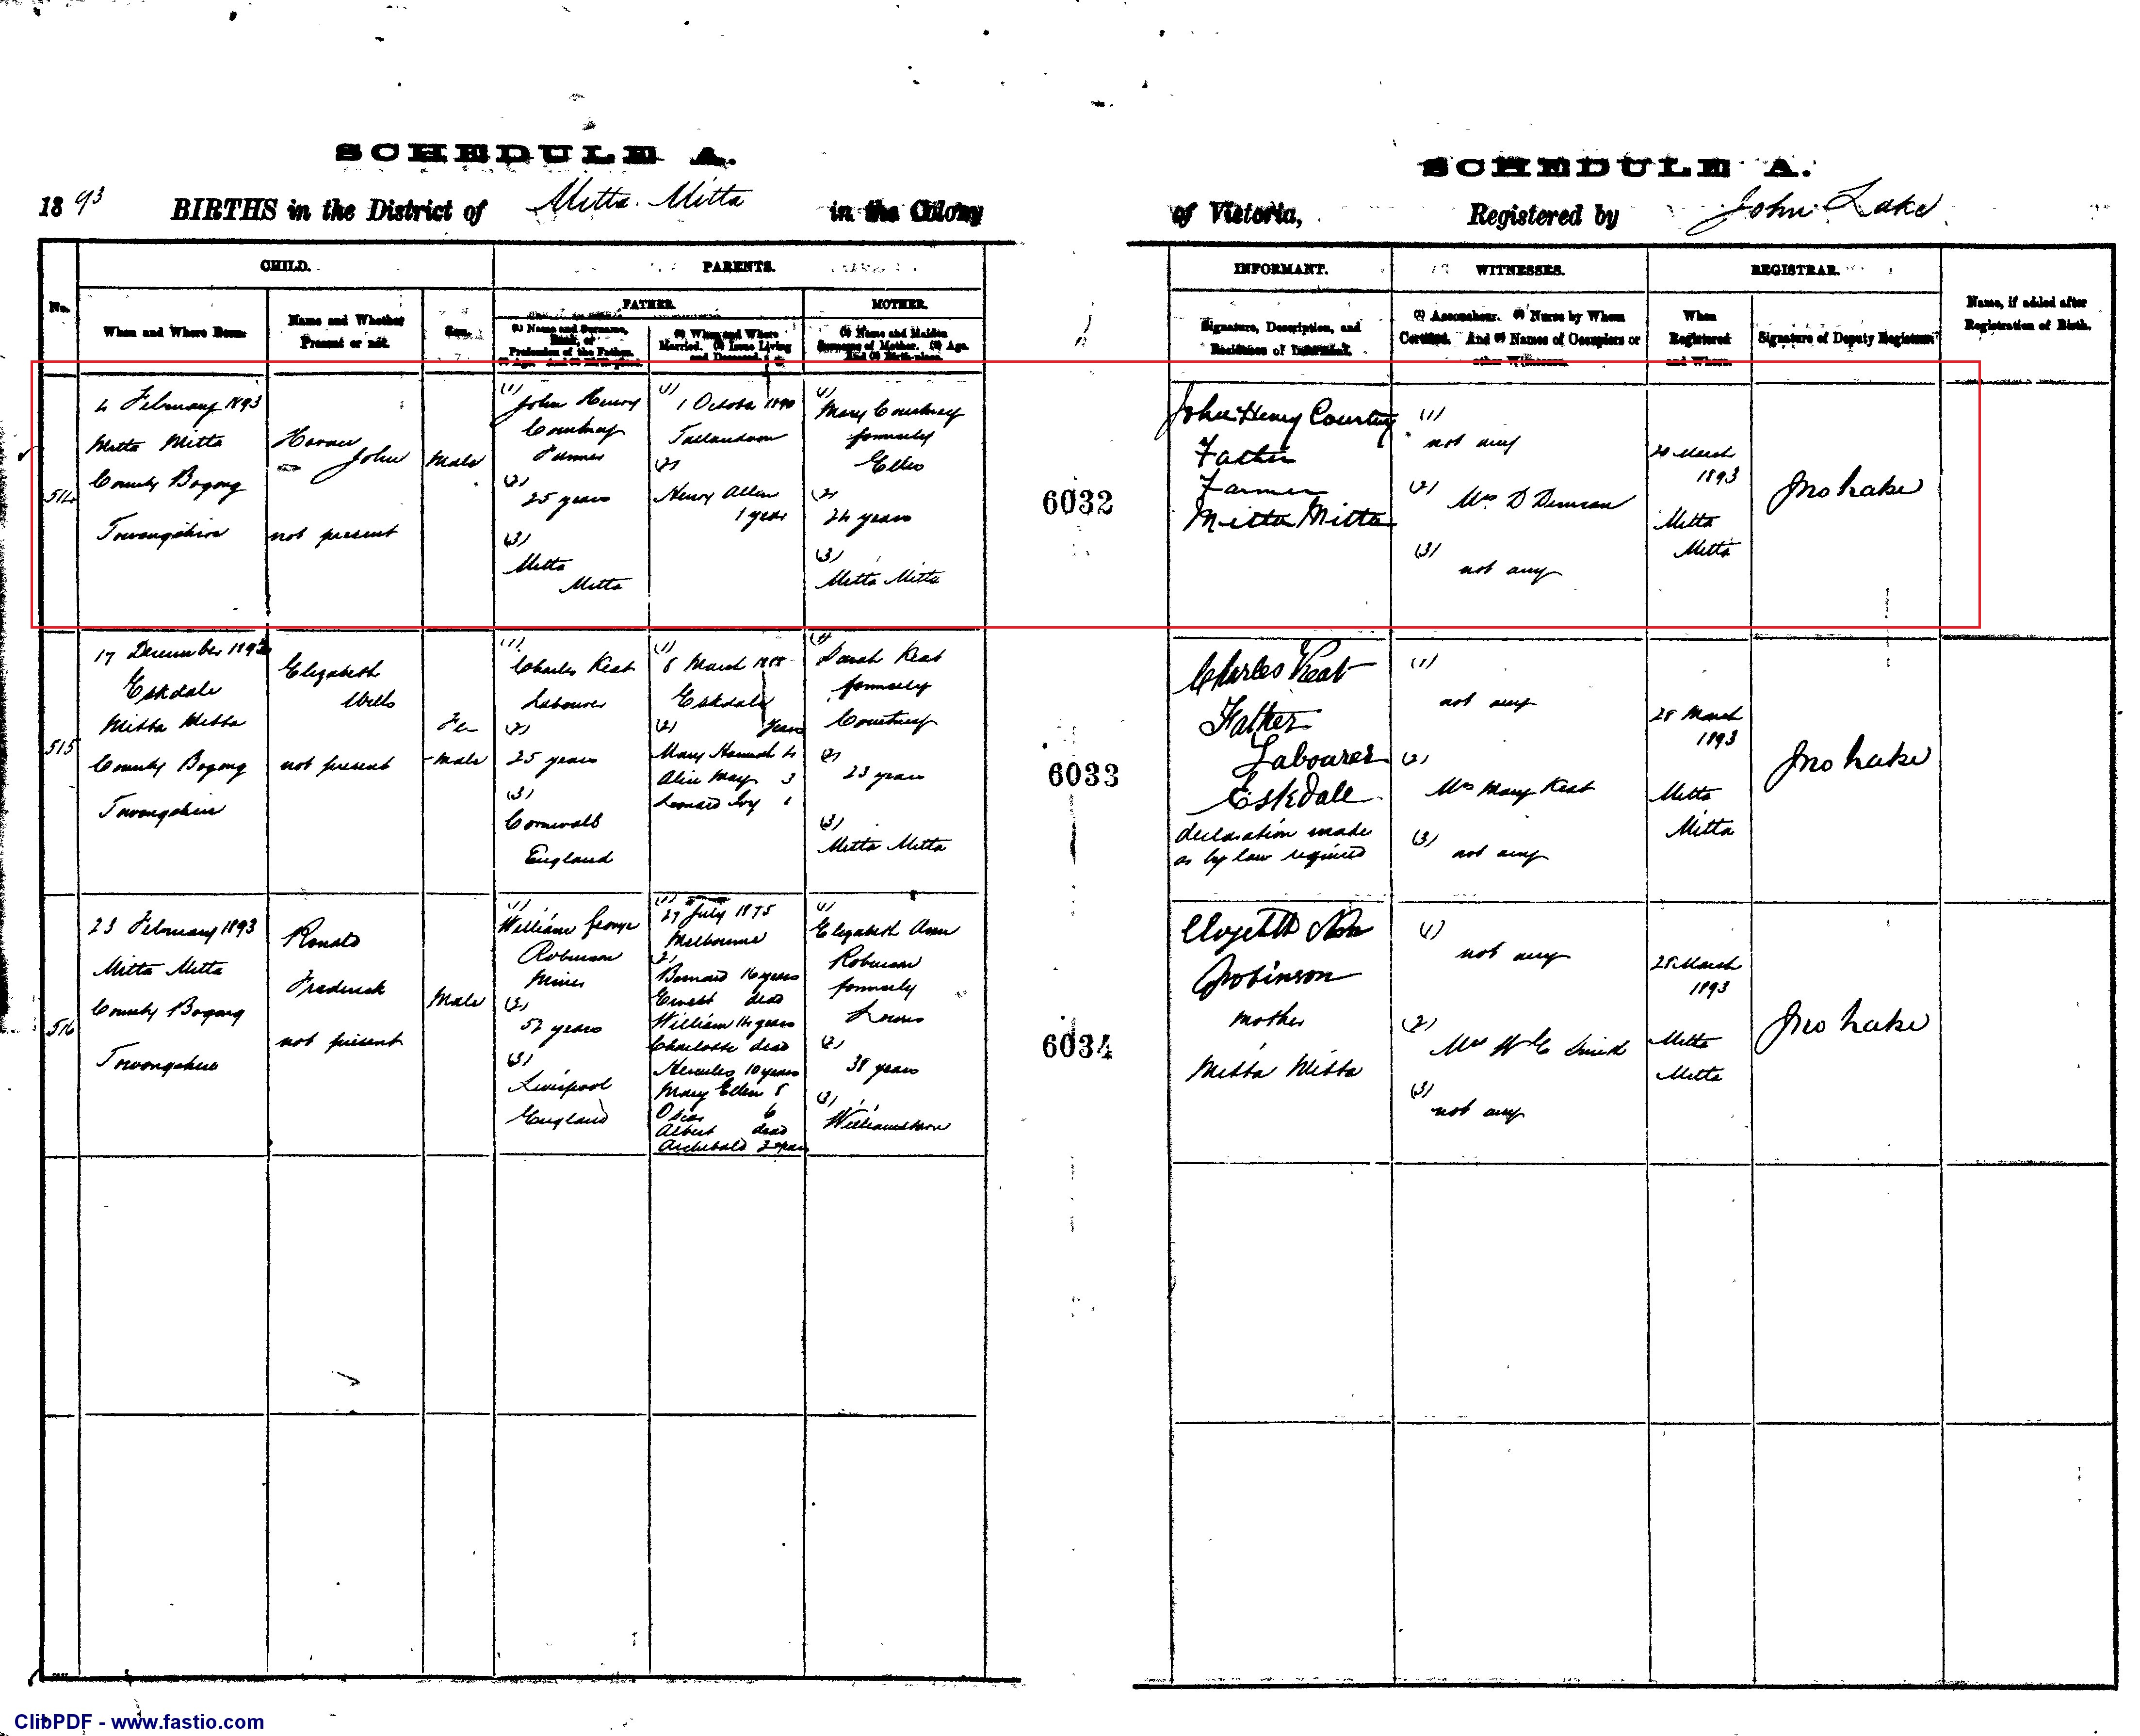 SCHEDULE A.
SCHEDULE A.
1893 BIRTHS in the District of Mitta Mitta in the Colony
of Victoria, Registered by John Lake
CHILD.
PARENTS.
INFORMANT.
WITNESSES.
REGISTRAR.
Name, if added after
Registration of Birth.
No.
FATHER.
MOTHER.
When and Where Born.
Name and Whether
Present or not.
Sex.
(1) Name and Surname,
Rank, or
Profession of the Father.
(2) Age. And (3) Birth-place.
(1) When and Where
Married. (2) Issue Living
and Deceased.
(1) Name and Maiden
Surname of Mother. (2) Age.
And (3) Birth-place.
Signature, Description, and
Residence of Informant.
(1) Accoucheur. (2) Nurse by Whom
Certified. And (3) Names of Occupiers or
other Witnesses.
When
Registered
and Where.
Signature of Deputy Registrar.
514
4 February 1893
Mitta Mitta
County Bogong
Towongshire
Horace
John
not present
Male
(1)
John Henry
Courtney
Farmer
(2)
25 years
(3)
Mitta
Mitta
(1)
1 October 1890
Tallandoon
(2)
Henry Allen
1 year
(1)
Mary Courtney
formerly
(2)
24 years
(3)
Mitta Mitta
6032
John Henry Courtney
Father
Farmer
Mitta Mitta
(1)
not any
(2) Mrs D Duncan
(3)
not any
March
1893
Mitta
Mitta
Jno Lake
515
17 December 189
Eskdale
Mitta Mitta
County Bogong
Towongshire
Elizabeth
Wills
not present
Fe-
-male
(1)
Charles Keat
Labourer
(2)
25 years
(3)
Cornwall
England
(1)
8 March 1888
Eskdale
(2) years
Mary Hannah 4
Alice May 3
Leonard Ivy 1
(1)
Sarah Keat
formerly
Courtney
(2)
23 years
(3)
Mitta Mitta
6033
Charles Keat
Father
Labourer
Eskdale
declaration made
as by law required
(1)
not any
(2)
Mrs Mary Keat
(3)
not any
28 March
1893
Mitta
Mitta
Jno Lake
516
23 February 1893
Mitta Mitta
County Bogong
Towongshire
Ronald
Frederick
not present
Male
(1)
William George
Robinson
Miner
(2)
52 years
(3)
Liverpool
England
(1)
27 July 1875
Melbourne
(2)
Bernard 16 years
Ernest dead
William 14 years
Charlotte dead
Hercules 10 years
Mary Ellen 8
Oscar 6
Albert dead
Archibald 2 years
(1)
Elizabeth Ann
Robinson
formerly
(2)
38 years
(3)
Williamstown
6034
Elizabeth Ann
Robinson
mother
Mitta Mitta
(1)
not any
(2)
Mrs W
(3)
not any
28 March
1893
Mitta
Mitta
Jno Lake
ClibPDF - www.fastio.com